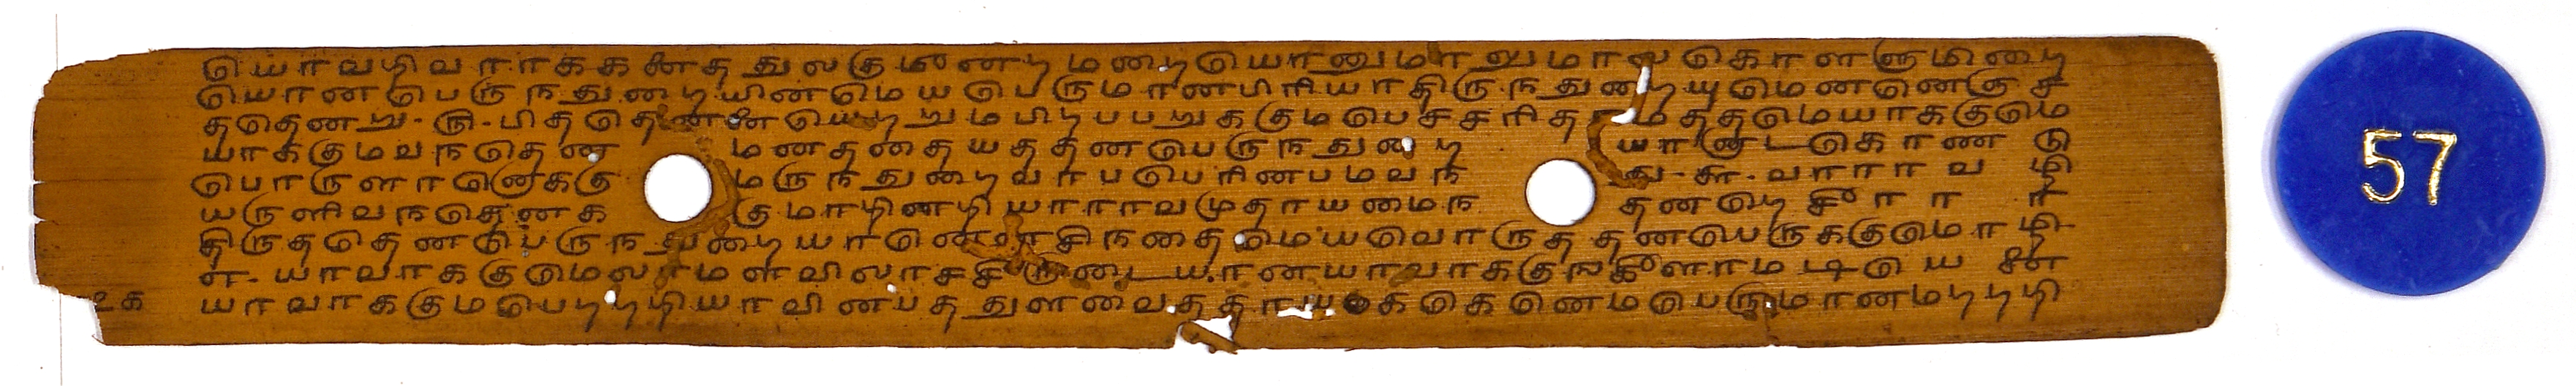 யொவறிவாராககனததுலகுமீனறமறையொனுமாலுமாலகொளளுமிறை
யொனபெருநதுறையினமெயபெருமானபிரியாதிருநதுறையுமெனனெஞச
ததெனறு-ரு-பிததெனனையெறறுமபிறபபறுககுமபெசசரிதாமமததமெயாககுமெ
யாககுமவநதென மனததையததனபெருநதுறை யானாடகொண டு
பொருளானொககு மருநதுறைவாபபெரினபமவந து-சு-வாராவ ழி
யருளிவநதெனக குமாறினறியாராவமுதாயமைந தனறெசீரா ர
திருததெனபெருநதுறையானெனசிநதைமெயவொருததனபெருககுமொழி
எ-யாவாககுமெலாமளவிலாசசீருடையானயாவாககுஙகீழாமடியெனை
உக யாவாககுமபெறறறியாவினபததுளவைததாயககெனெமபெருமானமறறறி
57